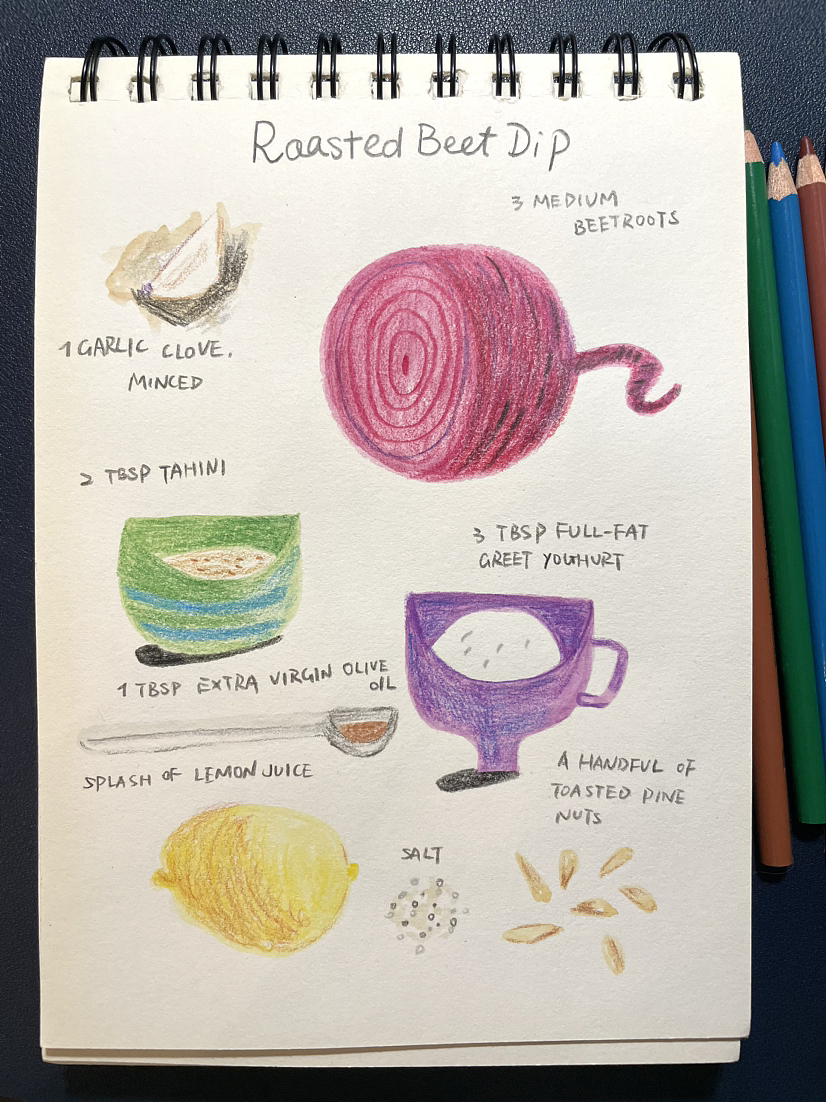 Roasted Beet Dip
3 MEDIUM
BEETROOTS
1 GARLIC CLOVE,
MINCED
2 TBSP TAHINI
3 TBSP FULL-FAT
GREET YOGHURT
1 TBSP EXTRA VIRGIN OLIVE
OIL
SPLASH OF LEMON JUICE
A HANDFUL OF
TOASTED PINE
NUTS
SALT